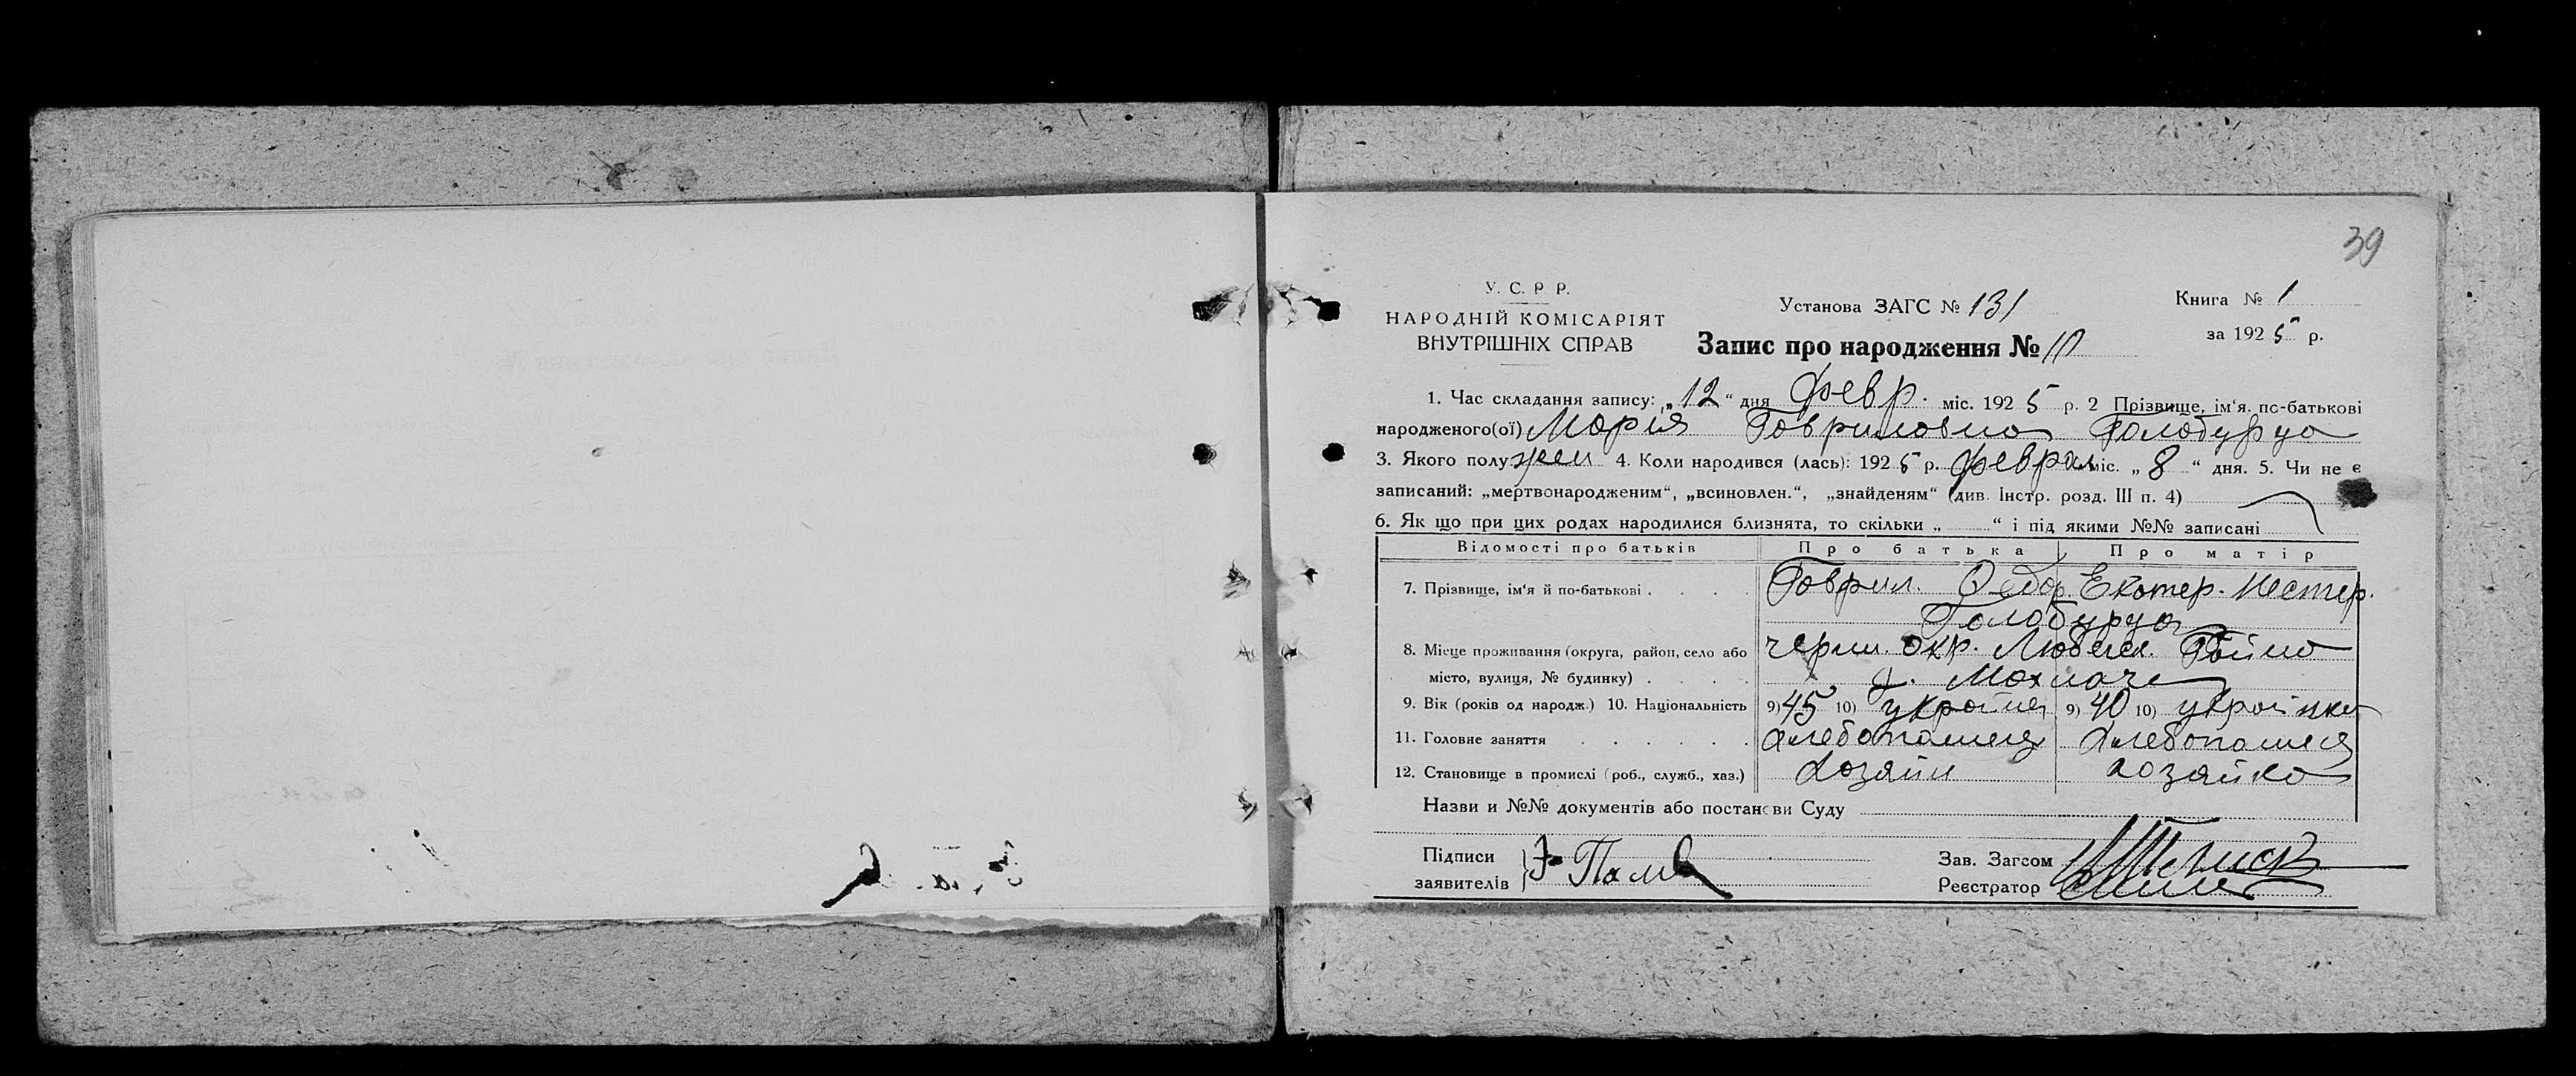 39
У. С. Р. Р.
НАРОДНІЙ КОМІСАРІЯТ
ВНУТРІШНІХ СПРАВ
Установа ЗАГС № 131
Запис про народження № 10
Книга № 1
за 1925 р.
1. Час складання запису: „12“ дня Февр. міс. 1925 р. 2 Прізвище, ім‘я, по-батькові
народженого(ої) Мария Гавриловна Голобуруа
3. Якого полу жен 4. Коли народився (лась): 1925 р. феврал міс. „ 8 “ дня. 5. Чи не є
записаний: „мертвонародженим“, „всиновлен.“, „знайденям“ (див. Інстр. розд. III п. 4)
6. Як що при цих родах народилися близнята, то скільки „ “ і під якими №№ записані
Відомості про батьків Про батька Про матір
7. Прізвище, ім‘я й по-батькові Гаврил. Федор Екатер. Нестер.
8. Місце проживання (округа, район, село або Черни. окр. Любеск.
місто, вулиця, № будинку)
9. Вік (років од народж.) 10. Національність 9) 45 10) украинец 9) 40 10) украінка
11. Головне заняття хлебопашец хлебопашец
12. Становище в промислі (роб., служб., хаз.) хозяин хозяйка
Назви и №№ документів або постанови Суду
Підписи
заявителів
Зав. Загсом
Реєстратор